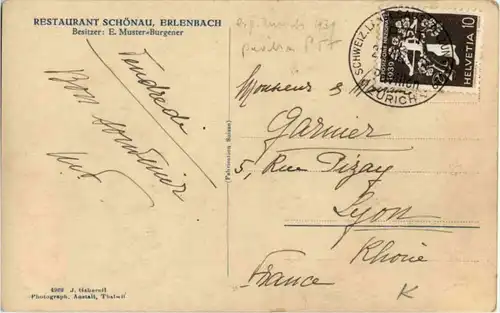 RESTAURANT SCHÖNAU, ERLENBACH
Besitzer: E. Muster-Burgener
Vendredi
Bon souvenir
(Fabrication Suisse)
4269 J. Gaberell
Photograph. Anstalt, Thalwil
1939
SCHWEIZ.
ZÜRICH
HELVETIA 10
Monsieur &
Garnier
5, Rue Pizay
Lyon
Rhône
France
K